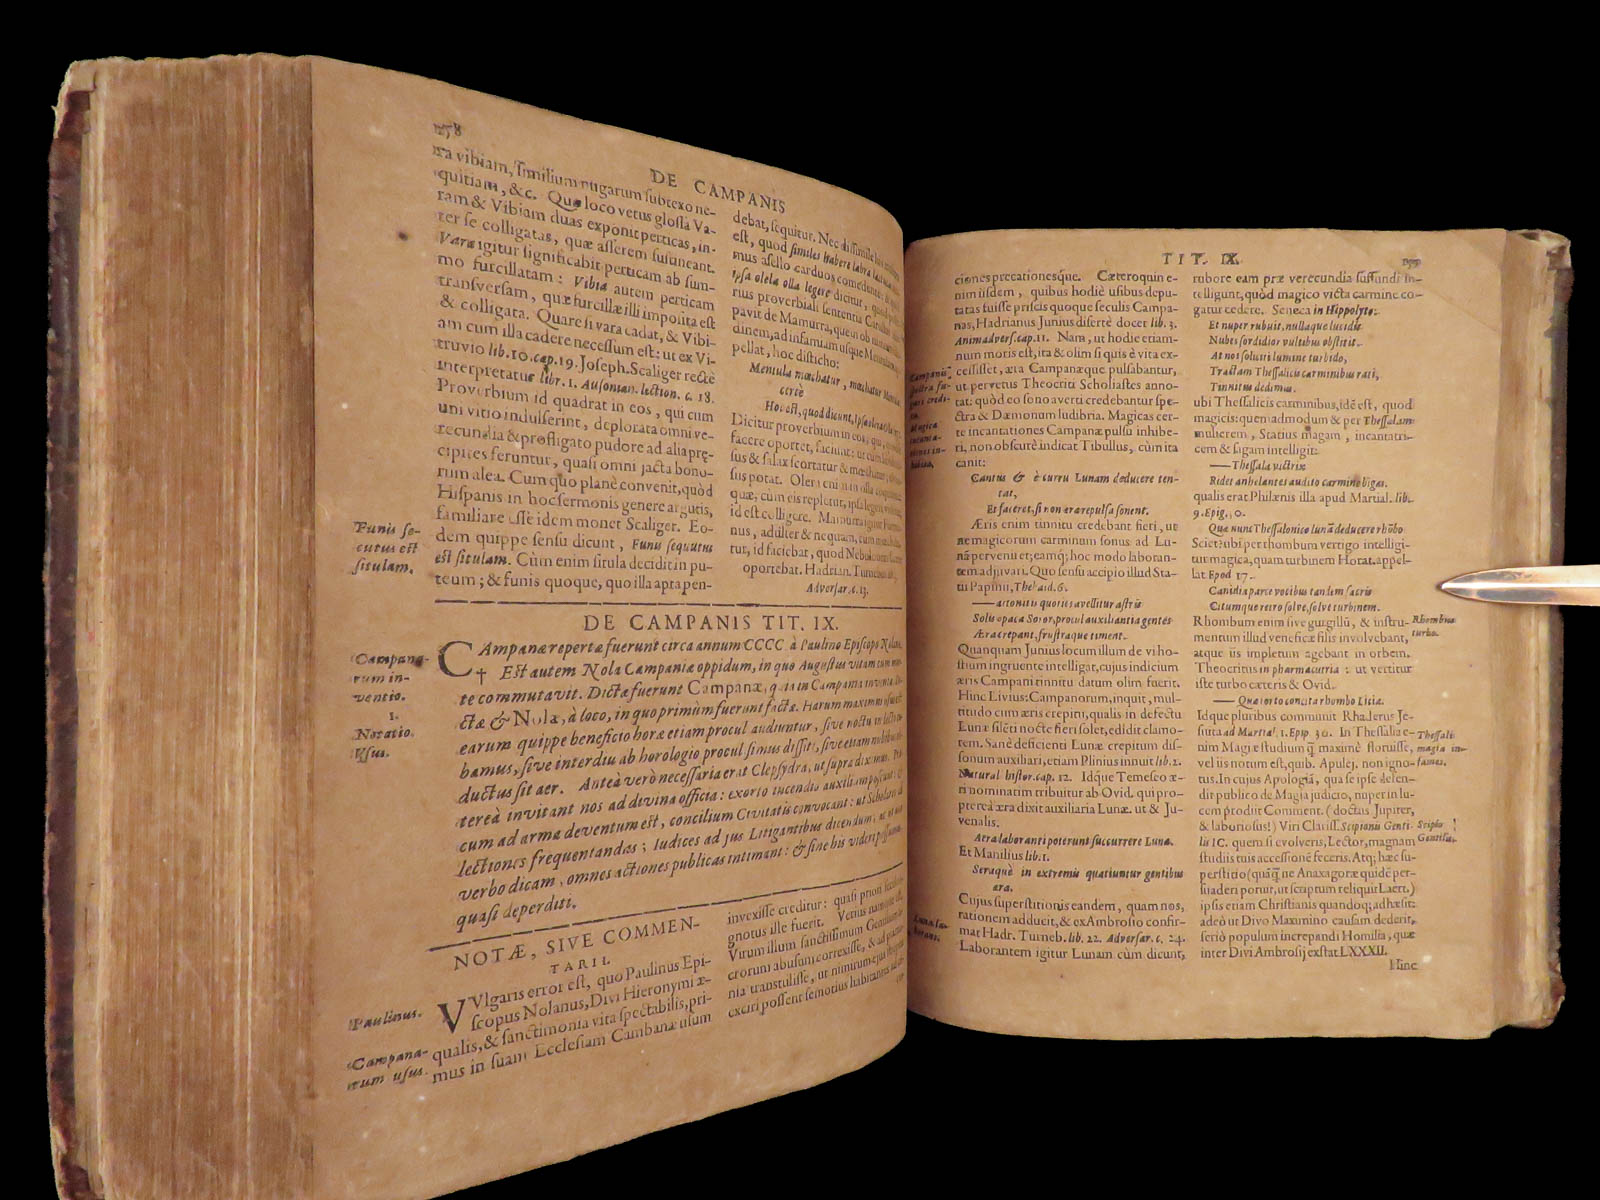 DE CAMPANIS
ra vibiam, similium nugarum subtexo ne-
quitiam, &c. Quo loco vetus glossa Va-
ram & Vibiam duas exponit perticas, in-
ter se colligatas, quæ asserem sustineant.
Vara igitur significabit perticam ab sum-
mo furcillatam: Vibia autem perticam
transversam, quæ furcillæ illi imposita est
& colligata. Quare si vara cadat, & Vibi-
am cum illa cadere necessum est: ut ex Vi-
truvio lib. 10. cap. 19. Joseph. Scaliger rectè
interpretatur libr. 1. Ausonian. lection. c. 18.
Proverbium id quadrat in eos, qui cum
uni vitio indulserint, deplorata omni ve-
recundia & profligato pudore ad alia præ-
cipites feruntur, quasi omni jacta bono-
rum alea. Cum quo planè convenit, quòd
Hispanis in hoc sermonis genere argutis,
familiare esse idem monet Scaliger. Eo-
dem quippe sensu dicunt, Funis sequutus
est situlam. Cùm enim situla decidit in pu-
teum; & funis quoque, quo illa apta pen-
Funis se-
cutus est
situlam.
debat, sequitur. Nec dissimile
est, quod similes habere labra lactucas
mus asello carduos comedente:
ipsa olera olla legere dicitur,
rius proverbiali sententia Catullus
pavit de Mamurra, que
dinem, ad infamiam usque
pellat, hoc disticho:
Mentula mœchatur, mœchatur
certè
Hoc est, quod dicunt, ipsa olera
Dicitur proverbium in eos, qui,
facere oportet, faciunt: ut cum
sus & salax scortatur & mœchatur
sus potat. Olera enim in olla
quæ, cùm eis repletur, ipsa legere
id est colligere. Mamurra igitur
nus, adulter & nequam, cum
tur, id faciebat, quod Nebulonem
oportebat. Hadrian. Turnebus
Adversar. c. 13.
DE CAMPANIS TIT. IX.
CAmpanæ repertæ fuerunt circa annum CCCC à Paulino Episcopo Nolano.
† Est autem Nola Campaniæ oppidum, in quo Augustus vitam cum mor-
te commutavit. Dictæ fuerunt Campanæ, quia in Campania inventæ
ctæ & Nolæ, à loco, in quo primùm fuerunt factæ. Harum maximus usus est
earum quippe beneficio horæ etiam procul audiuntur, sive noctu in lecto
bamus, sive interdiu ab horologio procul simus dissiti, sive etiam nubibus
ductus sit aer. Anteà verò necessaria erat Clepsydra, ut supra diximus.
tereà invitant nos ad divina officia: exorto incendio auxiliam poscunt:
cum ad arma deventum est, concilium Civitatis convocant: ut Scholares
lectiones frequentandas; Iudices ad jus Litigantibus dicendum, ac ut
verbo dicam, omnes actiones publicas intimant: & sine his videri possumus
quasi deperditi.
Campana-
rum in-
ventio.
1.
Notatio.
Usus.
NOTÆ, SIVE COMMEN-
TARII.
VUlgaris error est, quo Paulinus Epi-
scopus Nolanus, Divi Hieronymi æ-
qualis, & sanctimonia vita spectabilis, pri-
mus in suam Ecclesiam Campanæ usum
Paulinus.
Campana-
rum usus.
invexisse creditur: quasi priori seculo
ignotus ille fuerit. Verius
Virum illum sanctissimum Gentilium
crorum abusum correxisse, & ad
nia transtulisse, ut nimirum ejus
exciri possent semotius habitantes ad
TIT. IX.
ciones precationesque. Cæteroquin e-
nim iisdem, quibus hodiè usibus depu-
tatas fuisse priscis quoque seculis Campa-
nas, Hadrianus Junius disertè docet lib. 3.
Animadvers. cap. 11. Nam, ut hodie etiam-
num moris est, ita & olim si quis è vita ex-
cessisset, æra Campanæque pulsabantur,
ut pervetus Theocriti Scholiastes anno-
tat: quòd eo sono averti credebantur spe-
ctra & Dæmonum ludibria. Magicas cer-
te incantationes Campanæ pulsu inhibe-
ri, non obscurè indicat Tibullus, cùm ita
canit:
Cantus & è curru Lunam deducere ten-
tat,
Et faceret, si non æra repulsa sonent.
Æris enim tinnitu credebant fieri, ut
ne magicorum carminum sonus ad Lu-
nā pervenuet; eamq; hoc modo laboran-
tem adjuvari. Quo sensu accipio illud Sta-
tii Papinii, Thebaid. 6.
— attonitis quoties avellitur astris
Solis opaca Soror, procul auxiliantia gentes
Æra crepant, frustraque timent.
Quanquam Junius locum illum de vi ho-
stium ingruente intelligat, cujus indicium
æris Campani tinnitu datum olim fuerit.
Hinc Livius: Campanorum, inquit, mul-
titudo cum æris crepitu, qualis in defectu
Lunæ silēti nocte fieri solet, edidit clamo-
rem. Sanè deficienti Lunæ crepitum dis-
sonum auxiliari, etiam Plinius innuit lib. 2.
Natural histor. cap. 12. Idque Temesæo æ-
ri nominatim tribuitur ab Ovid. qui pro-
ptereà æra dixit auxiliaria Lunæ. ut & Ju-
venalis.
Æra laboranti poterunt succurrere Lunæ.
Et Manilius lib. 1.
Seraque in extremis quatiuntur gentibus
æra.
Cujus superstitionis eandem, quam nos,
rationem adducit, & ex Ambrosio confir-
mat Hadr. Turneb. lib. 22. Adversar. c. 24.
Laborantem igitur Lunam cùm dicunt,
rubore eam præ verecundia suffundi in-
telligunt, quòd magico victa carmine co-
gatur cedere. Seneca in Hippolyto:
Et nuper rubuit, nullaque lucidis
Nubes sordidior vultibus obstitit.
At nos soliciti lumine turbido,
Tractam Thessalicis carminibus rati,
Tinnitus dedimus.
ubi Thessalicis carminibus, idē est, quod
magicis: quemadmodum & per Thessalam
mulierem, Statius magam, incantatri-
cem & sagam intelligit:
— Thessala victrix
Ridet anhelantes audito carmine bigas.
qualis erat Philænis illa apud Martial. lib.
9. Epig. 30.
Quæ nunc Thessalico lunā deducere rhōbo
Sciet: ubi per rhombum vertigo intelligi-
tur magica, quam turbinem Horat. appel-
lat Epod 17.
Canidia parce vocibus tandem sacris
Citumque retro solve, solve turbinem.
Rhombum enim sive gurgillū, & instru-
mentum illud veneficæ filis involvebant,
atque iis impletum agebant in orbem.
Theocritus in pharmacutria: ut vertitur
iste turbo cæteris & Ovid.
— Quæ torto concita rhombo Licia.
Idque pluribus communit Rhaderus Je-
suita ad Martial. 1. Epig. 30. In Thessalia e-
nim Magiæ studium q̄ maximè floruisse,
vel iis notum est, quib. Apulej. non igno-
tus. In cujus Apologiā, qua se ipse defen-
dit publico de Magia judicio, nuper in lu-
cem prodiit Comment. (doctus Jupiter,
& laboriosus!) Viri Clariss. Scipionis Genti-
lis IC. quem si evolveris, Lector, magnam
studiis tuis accessionē feceris. Atq; hæc su-
perstitio (quāq̄ ne Anaxagoræ quidē per-
suaderi potuit, ut scriptum reliquit Laert.)
ipsis etiam Christianis quandoq; adhæsit:
adeò ut Divo Maximino causam dederit,
seriò populum increpandi Homilia, quæ
inter Divi Ambrosij exstat LXXXII.
Hinc
Rhombus
turbo.
Thessali
magia in-
fames.
Scipio
Gentilis.